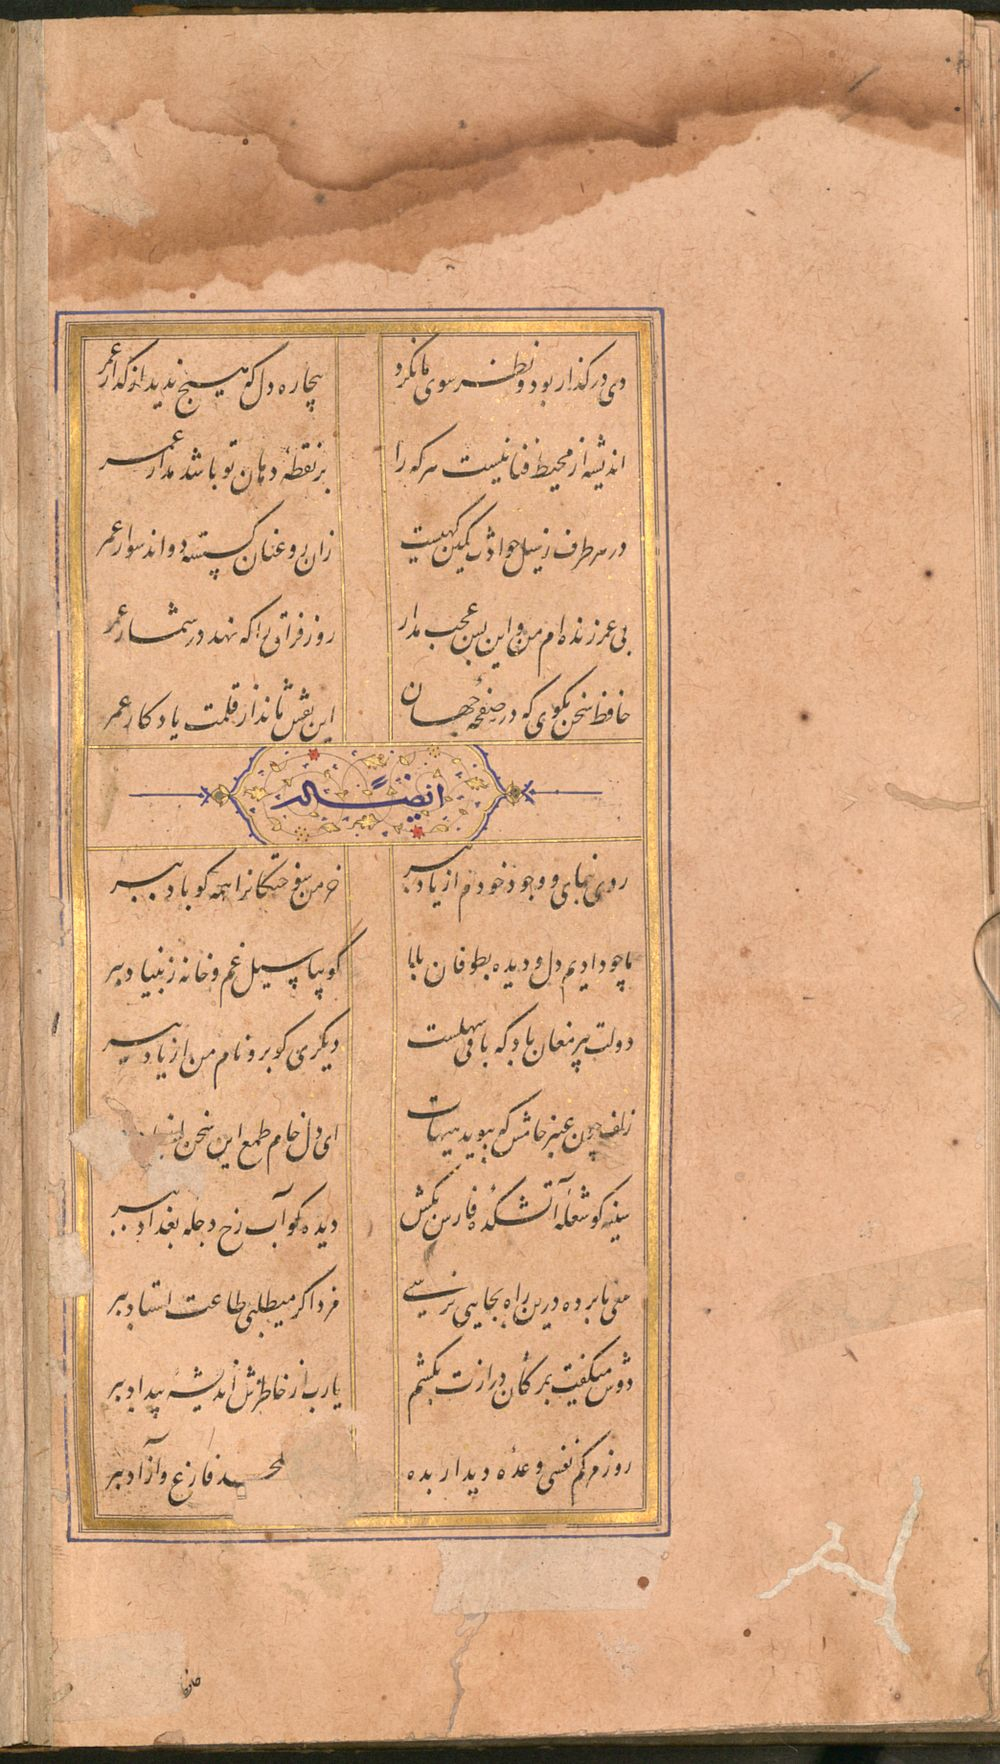 دی در گذار بود و نظر سوی ما نکرد بیچاره دل که هیچ ندید از گذار عمر
اندیشه از محیط فنا نیست هر که را بر نقطهٔ دهان تو باشد مدار عمر
در هر طرف ز خیل حوادث کمین گهیست زان رو عنان گسسته دواند سوار عمر
بی عمر زنده ام من و این بس عجب مدار روز فراق را که نهد در شمار عمر
حافظ سخن بگوی که در صفحهٔ جهان این نقش ماند از قلمت یادگار عمر
ایضاً له
روی بنمای و وجود خودم از یاد ببر خرمن سوختگانرا همه گو باد ببر
ما چو دادیم دل و دیده بطوفان بلا گو بیا سیل غم و خانه ز بنیاد ببر
دولت پیر مغان باد که باقی سهلست دیگری گو برو نام من از یاد ببر
زلف چون عنبر خامش که ببوید هیهات ای دل خام طمع این سخن
سینه گو شعلهٔ آتشکدهٔ فارس بکش دیده گو آب رخ دجله بغداد ببر
سعی نابرده درین راه بجایی نرسی مزد اگر میطلبی طاعت استاد ببر
دوش میگفت بمژگان درازت بکشم یارب از خاطرش اندیشهٔ بیداد ببر
روز مرگم نفسی وعدهٔ دیدار بده لحد فارغ و آزاد ببر
حافظ